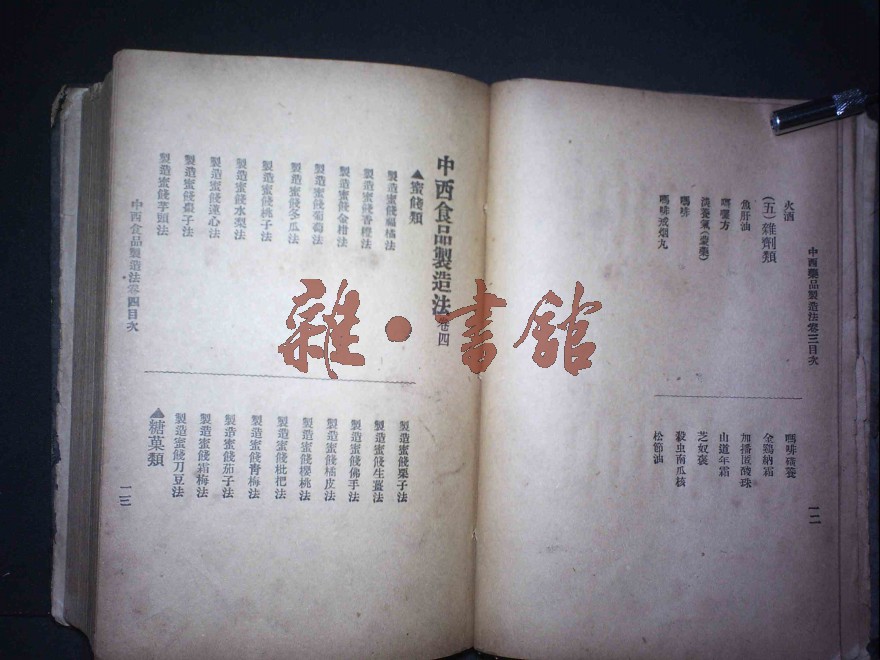 中西藥品製造法卷三目次
火酒
(五)雜劑類
魚肝油
嗎啡
嗎啡戒烟丸
金鷄納霜
加播匿酸球
山道年霜
殺虫南瓜核
松節油
一二
中西食品製造法卷四
▲蜜餞類
製造蜜餞福橘法
製造蜜餞香橙法
製造蜜餞金柑法
製造蜜餞葡萄法
製造蜜餞冬瓜法
製造蜜餞桃子法
製造蜜餞水梨法
製造蜜餞蓮心法
製造蜜餞棗子法
製造蜜餞芋頭法
製造蜜餞果子法
製造蜜餞生薑法
製造蜜餞佛手法
製造蜜餞橘皮法
製造蜜餞櫻桃法
製造蜜餞枇杷法
製造蜜餞青梅法
製造蜜餞茄子法
製造蜜餞霜梅法
製造蜜餞刀豆法
▲糖菓類
中西食品製造法卷四目次
一三
雜·書館